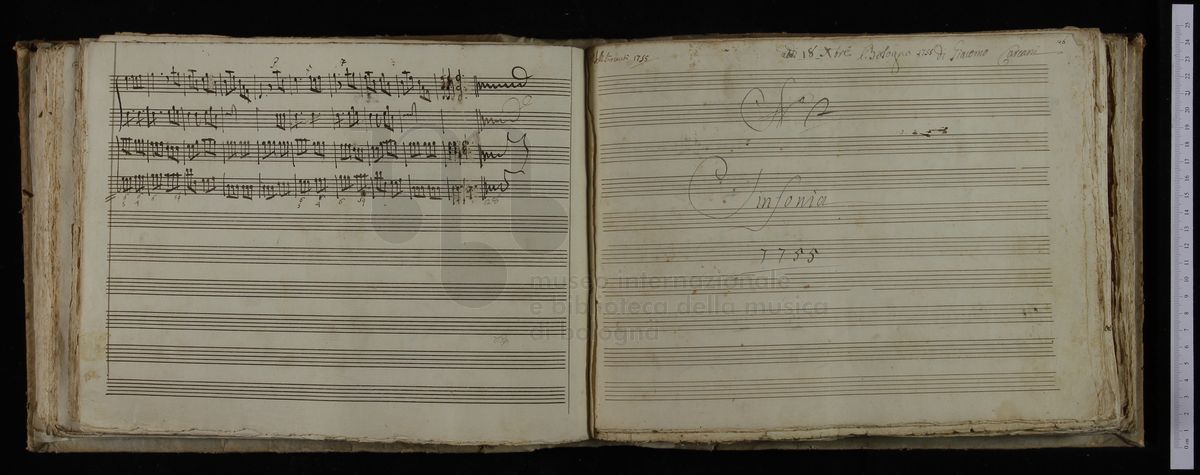 128
1755
adi 18 Xbre Bologna 1755 di Giacomo Carcani
No 2
Sinfonia
1755
museo internazionale
e biblioteca della musica
di bologna